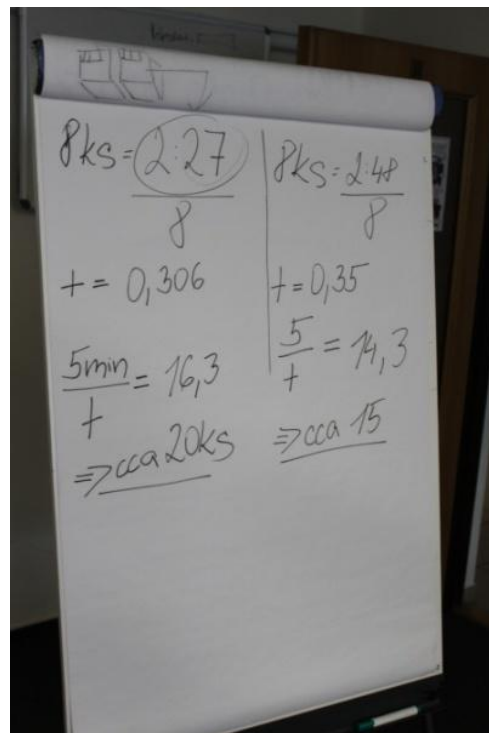 8ks = 2:27
8
t = 0,306
5min = 16,3
t
=> cca 20ks
8ks = 2:48
8
t = 0,35
5 = 14,3
t
=> cca 15